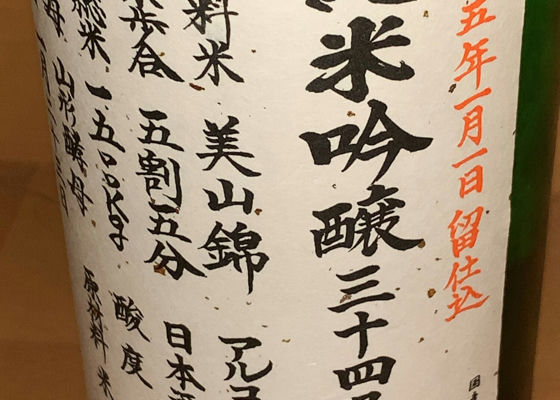 五年一月一日留仕込
米吟醸三十四
料米 美山錦 アルコ
歩合 五割五分 日本酒
総米 一五〇〇kg 酸度
母 山形酵母 原材料 米